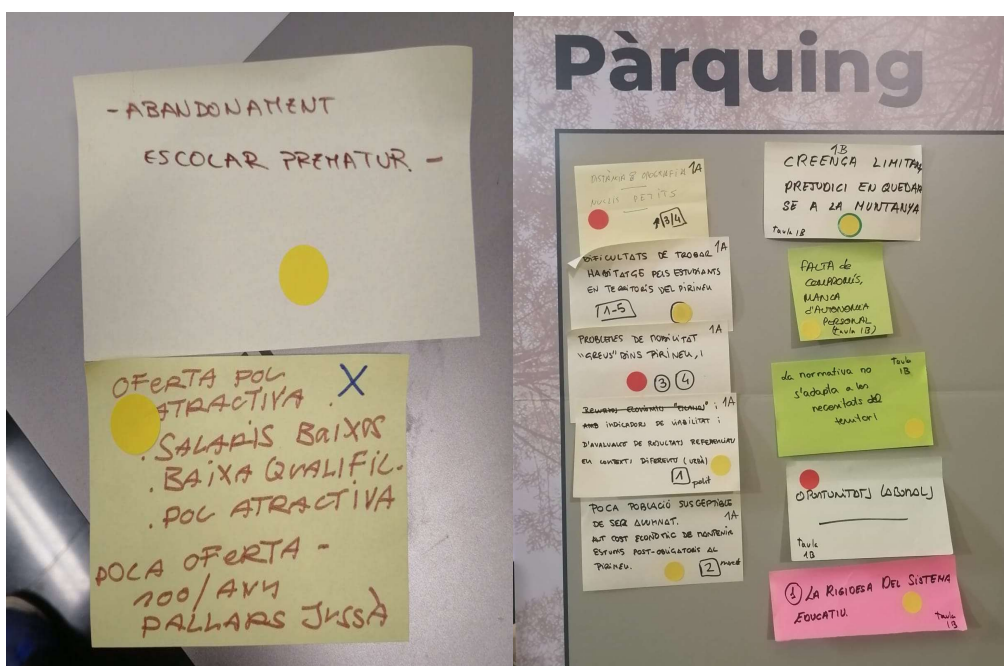 - ABANDONAMENT
ESCOLAR PREMATUR -
OFERTA POC
ATRACTIVA. X
. SALARIS BAIXOS
. BAIXA QUALIFIC.
. POC ATRACTIVA
POCA OFERTA -
100/ANY
PALLARS JUSSÀ
Pàrquing
1A
NUCLIS PETITS
3/4
DIFICULTATS DE TROBAR 1A
HABITATGE PELS ESTUDIANTS
EN TERRITORIS DEL PIRINEU
1-5
PROBLEMES DE MOBILITAT 1A
"GREUS" DINS PIRINEU, I
3 4
1A
INDICADORS DE VIABILITAT I
D'AVALUACIÓ DE RESULTATS REFERENCIATS
EN CONTEXT DIFERENT (URBÀ)
1 polit
POCA POBLACIÓ SUSCEPTIBLE
DE SER ALUMNAT. 1A
ALT COST ECONÒMIC DE MANTENIR
ESTUDIS POST-OBLIGATORIS AL
PIRINEU. 2
1B
CREENÇA LIMITANT
PREJUDICI EN QUEDAR
SE A LA MUNTANYA
taula 1B
FALTA de
COMPROMÍS,
MANCA
d'AUTONOMIA
PERSONAL
(taula 1B)
taula
1B
La normativa no
s'adapta a les
necessitats del
territori
OPORTUNITATS LABORALS
taula
1B
1 LA RIGIDESA DEL SISTEMA
EDUCATIU.
taula
1B